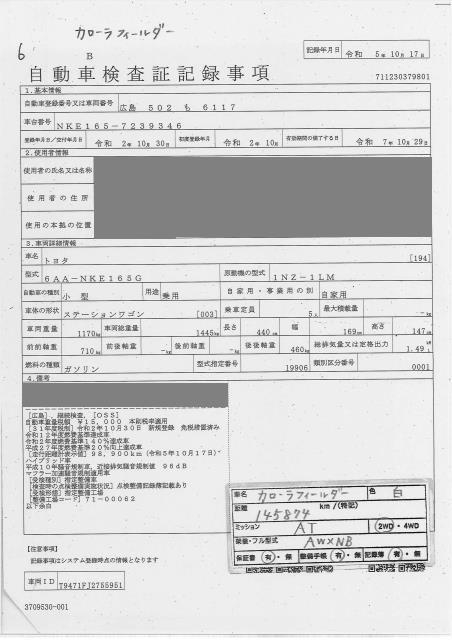 カローラフィールダー
6
B
記録年月日 令和 5年10月17日
自動車検査証記録事項
711230379801
1.基本情報
自動車登録番号又は車両番号 広島 502 も 6117
車台番号 NKE165-7239346
登録年月日/交付年月日 令和 2年10月30日 初度登録年月 令和 2年10月 有効期間の満了する日 令和 7年10月29日
2.使用者情報
使用者の氏名又は名称
使用者の住所
使用の本拠の位置
3.車両詳細情報
車名 トヨタ [194]
型式 6AA-NKE165G 原動機の型式 1NZ-1LM
自動車の種別 小型 用途 乗用 自家用・事業用の別 自家用
車体の形状 ステーションワゴン [003] 乗車定員 5人 最大積載量 -kg
車両重量 1170kg 車両総重量 1445kg 長さ 440cm 幅 169cm 高さ 147cm
前前軸重 710kg 前後軸重 -kg 後前軸重 -kg 後後軸重 460kg 総排気量又は定格出力 1.49
燃料の種類 ガソリン 型式指定番号 19906 類別区分番号 0001
4.備考
[広島],継続検査,[OSS]
自動車重量税額 ¥15,000 本則税率適用
[31年度税制]令和2年10月30日 新規登録 免税措置済み
令和12年度燃費基準達成車
令和2年度燃費基準140%達成車
平成27年度燃費基準20%向上達成車
[走行距離計表示値]98,900km(令和5年10月17日)
ハイブリッド車
平成10年騒音規制車,近接排気騒音規制値 96dB
マフラー加速騒音規制適用車
[受検種別]指定整備車
[検査時の点検整備実施状況]点検整備記録簿記載あり
[受検形態]指定整備工場
[整備工場コード]71-00062
以下余白
車名 カローラフィールダー 色 白
距離 145874 km/(特記)
ミッション AT 2WD・4WD
架装・フル型式 AWXNB
保証書 有・無 整備手帳 有・無 記録簿 有・無
[注意事項]
記録事項はシステム登録時点の情報となります
車両ID T9471FJ2755951
3709530-001